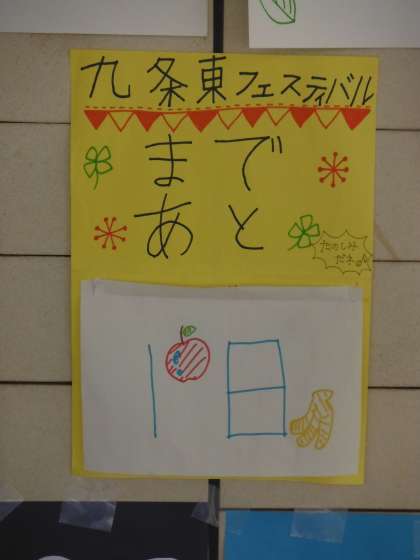 九条東フェスティバル
まで
あと
たのしみ
だネ♪
1日